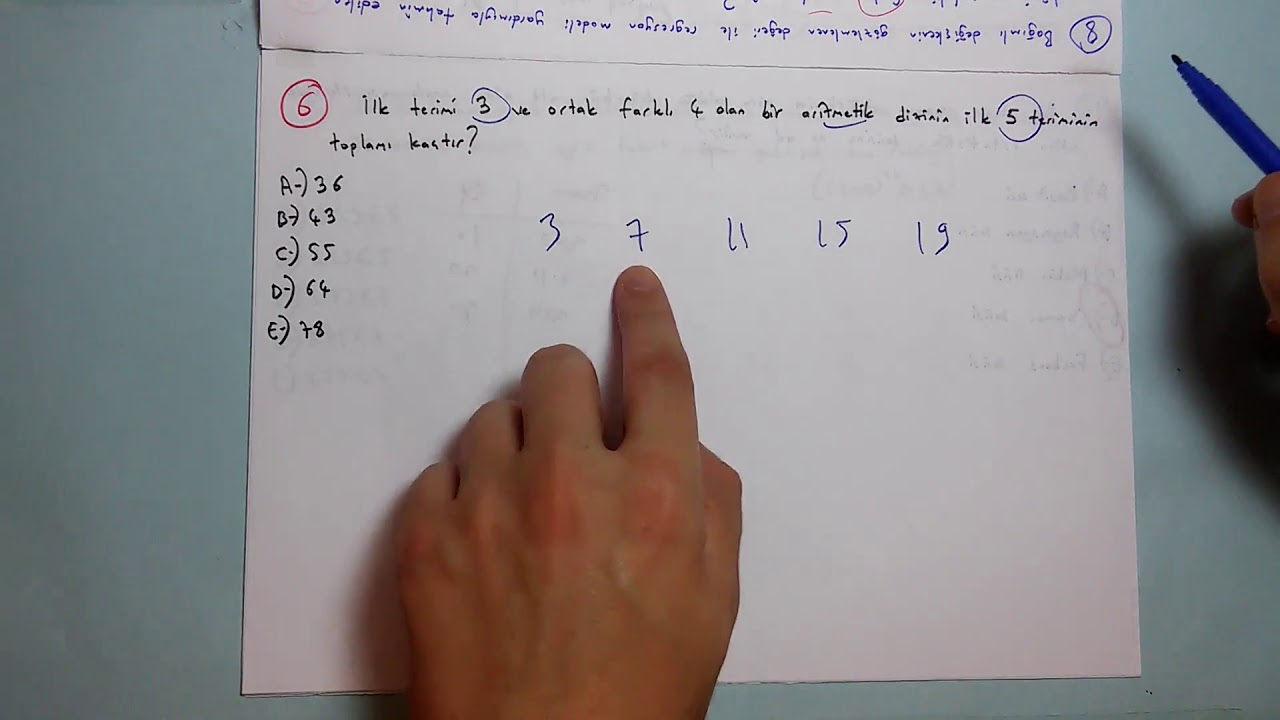 8 Bağımlı değişkenin gözlemlenen değeri ile regresyon modeli yardımıyla tahmin edilen
6 İlk terimi 3 ve ortak farkı 4 olan bir aritmetik dizinin ilk 5 teriminin
toplamı kaçtır?
A-) 36
B-) 43
C-) 55
D-) 64
E-) 78
3 7 11 15 19